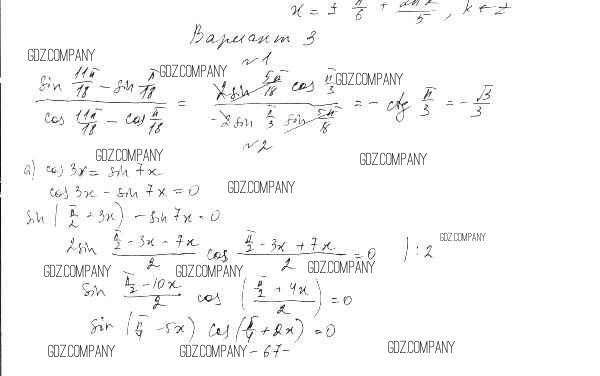 x = ± π/6 + 2πk/5, k ∈ Z
Вариант 3
GDZ.COMPANY
№1
GDZ.COMPANY
GDZ.COMPANY
(sin 11π/18 - sin π/18) / (cos 11π/18 - cos π/18) = (2 sin 5π/18 cos π/3) / (-2 sin π/3 sin 5π/18) = - ctg π/3 = - √3/3
GDZ.COMPANY
№2
GDZ.COMPANY
а) cos 3x = sin 7x
cos 3x - sin 7x = 0
GDZ.COMPANY
sin (π/2 - 3x) - sin 7x = 0
2 sin (π/2 - 3x - 7x)/2 cos (π/2 - 3x + 7x)/2 = 0 | : 2
GDZ.COMPANY
GDZ.COMPANY GDZ.COMPANY GDZ.COMPANY
sin (π/2 - 10x)/2 cos ((π/2 + 4x)/2) = 0
sin (π/4 - 5x) cos (π/4 + 2x) = 0
GDZ.COMPANY GDZ.COMPANY - 67 - GDZ.COMPANY